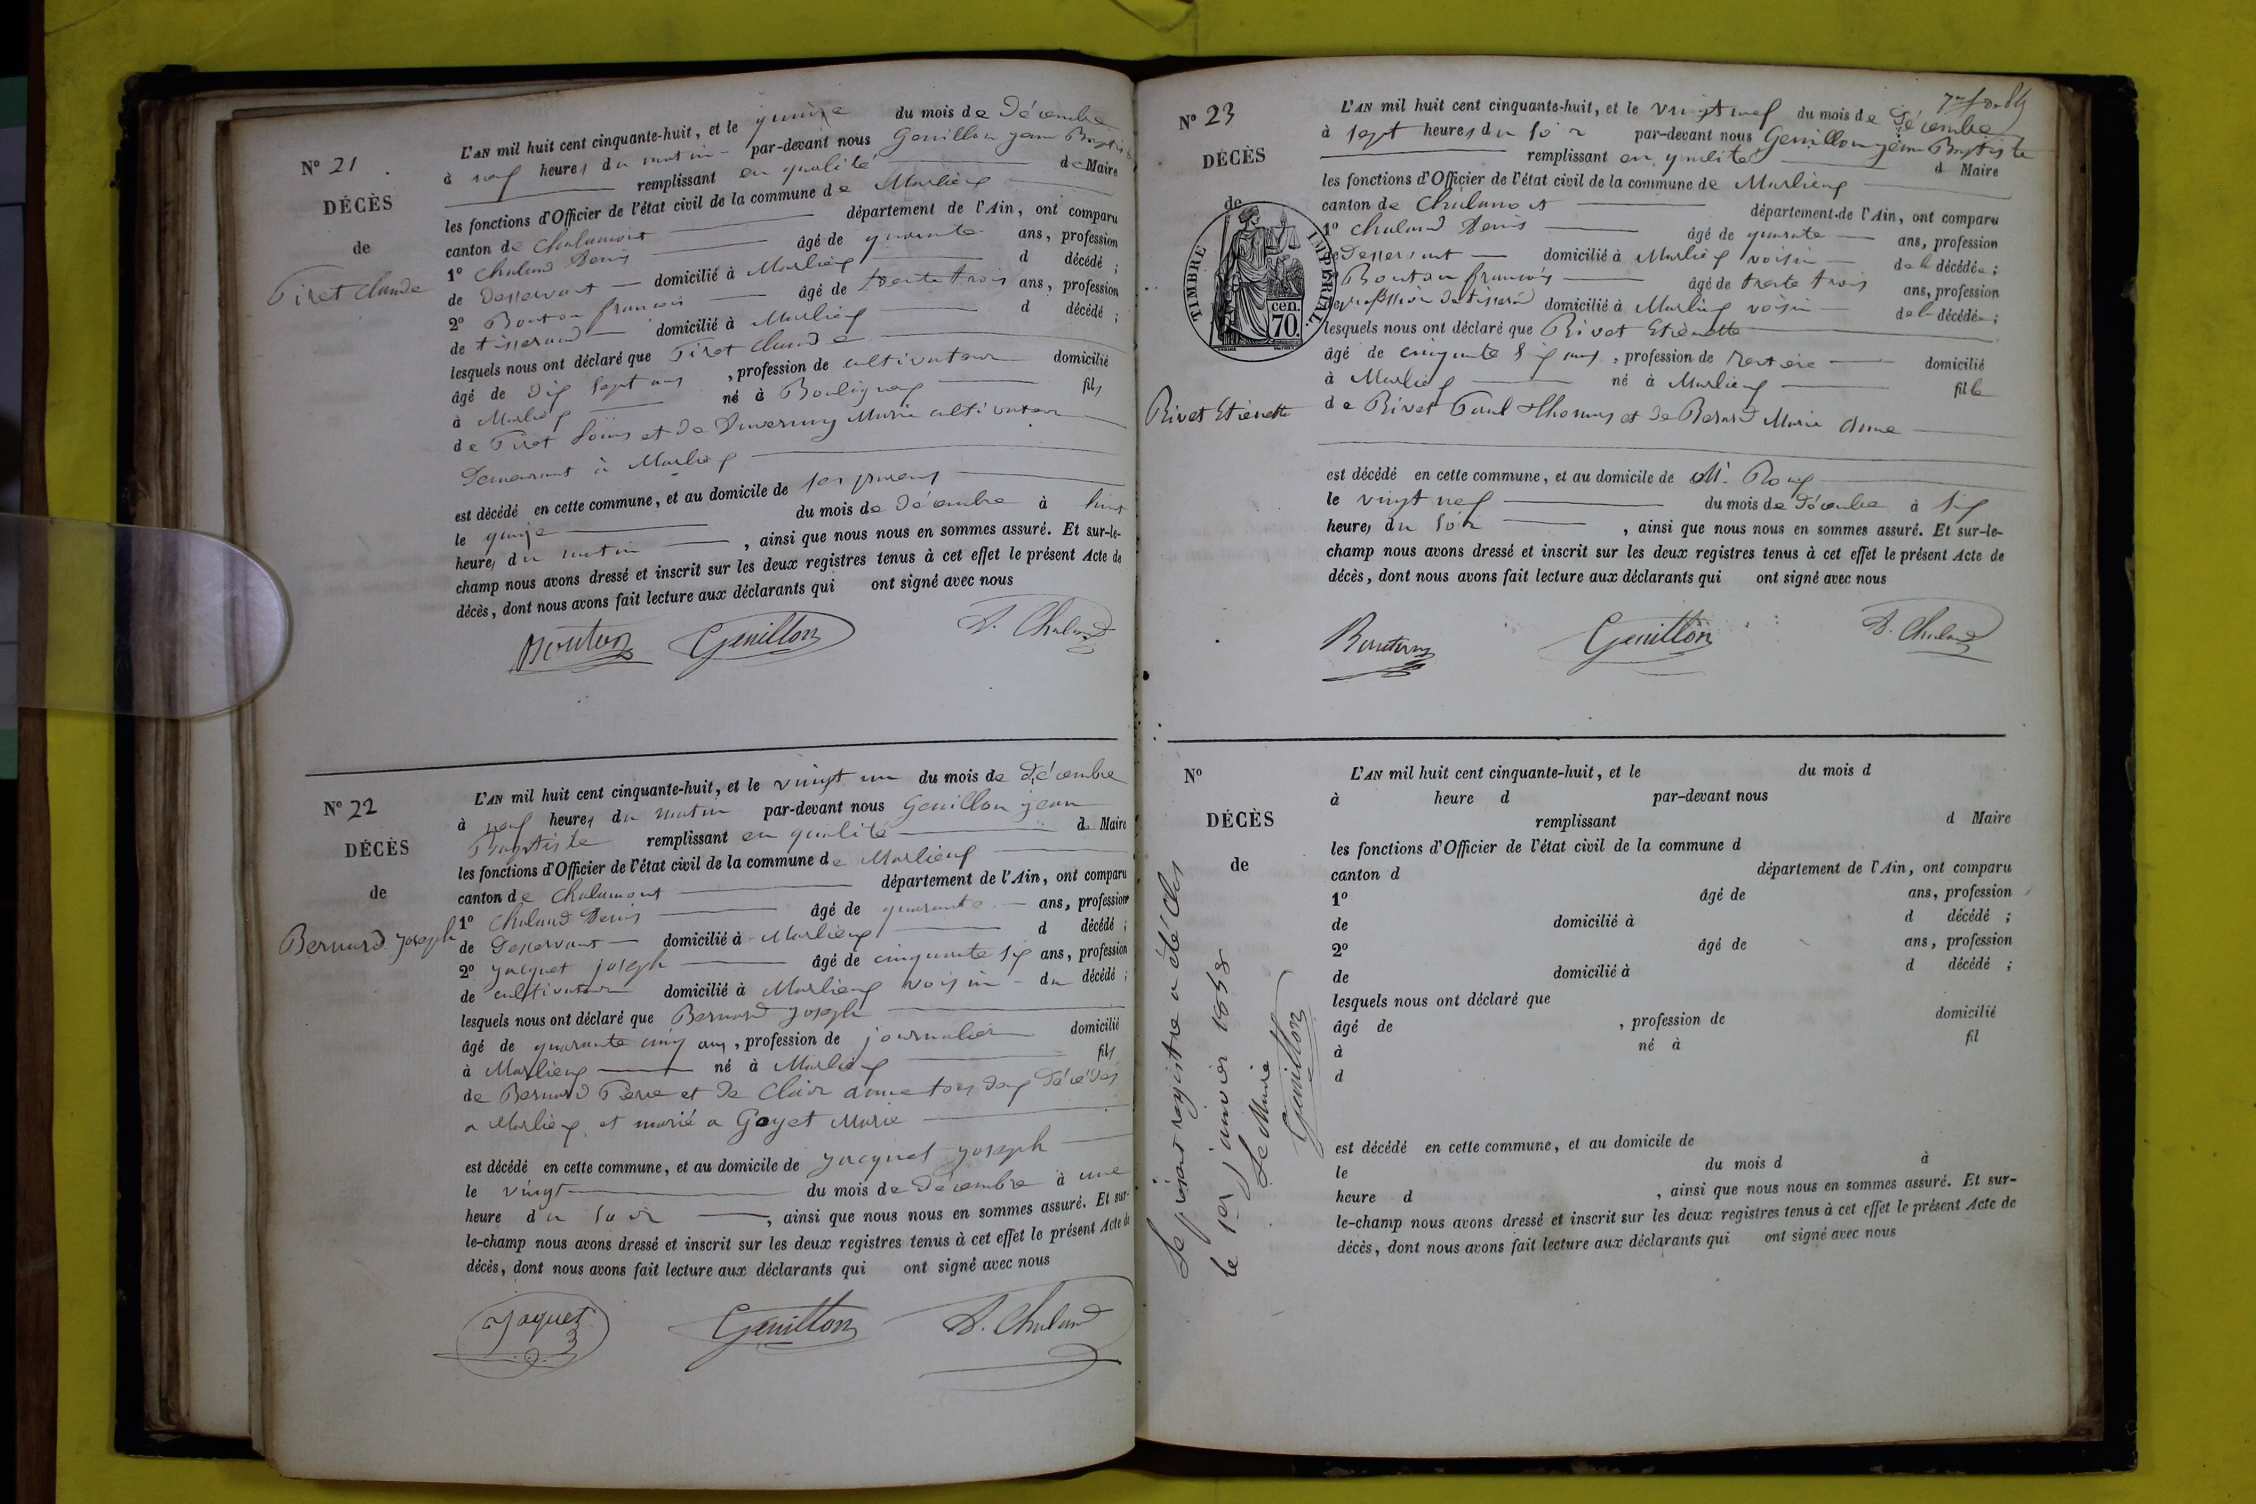 N° 21
DÉCÈS
de
Firet Claude
L'AN mil huit cent cinquante-huit, et le quinze du mois de Décembre
à neuf heures du matin par-devant nous Genillon jean Baptiste
remplissant en qualité de Maire
les fonctions d'Officier de l'état civil de la commune de Marlieux
canton de Chalamont département de l'Ain, ont comparu
1° Chaland Denis âgé de quarante ans, profession
de Desservant domicilié à Marlieux d décédé ;
2° Bouton francois âgé de trente trois ans, profession
de tisserand domicilié à Marlieux d décédé ;
lesquels nous ont déclaré que Firet Claude
âgé de dix sept ans , profession de cultivateur domicilié
à Marlieux né à Bouligneux fils
de Firet Loüis et de Duvernay Marie cultivateur
Demeurant à Marlieux
est décédé en cette commune, et au domicile de ses parens
le quinze du mois de Décembre à huit
heures du matin , ainsi que nous nous en sommes assuré. Et sur-le-
champ nous avons dressé et inscrit sur les deux registres tenus à cet effet le présent Acte de
décès, dont nous avons fait lecture aux déclarants qui ont signé avec nous
Bouton Genillon D. Chaland
N° 22
DÉCÈS
de
Bernard joseph
L'AN mil huit cent cinquante-huit, et le vingt un du mois de Décembre
à neuf heures du matin par-devant nous Genillon jean
Baptiste remplissant en qualité de Maire
les fonctions d'Officier de l'état civil de la commune de Marlieux
canton de Chalamont département de l'Ain, ont comparu
1° Chaland Denis âgé de quarante ans, profession
de Desservant domicilié à Marlieux d décédé ;
2° jacquet joseph âgé de cinquante six ans, profession
de cultivateur domicilié à Marlieux voisin du décédé ;
lesquels nous ont déclaré que Bernard joseph
âgé de quarante cinq ans, profession de journalier domicilié
à Marlieux né à Marlieux fils
de Bernard Pierre et de Clair anne tous deux décédés
a Marlieux et marié a Goyet Marie
est décédé en cette commune, et au domicile de jacquet joseph
le vingt du mois de Décembre à une
heure du soir , ainsi que nous nous en sommes assuré. Et sur-
le-champ nous avons dressé et inscrit sur les deux registres tenus à cet effet le présent Acte de
décès, dont nous avons fait lecture aux déclarants qui ont signé avec nous
Jaquet Genillon D. Chaland
N° 23
DÉCÈS
de
TIMBRE IMPÉRIAL.
cen.
70
Rivet Etienette
L'AN mil huit cent cinquante-huit, et le vingt neuf du mois de Décembre
à sept heures du soir par-devant nous Genillon jean Baptiste
remplissant en qualité d Maire
les fonctions d'Officier de l'état civil de la commune de Marlieux
canton de Chalamont département de l'Ain, ont comparu
1° Chaland Denis âgé de quarante ans, profession
de Desservant domicilié à Marlieux voisin de la décédée ;
Bouton francois âgé de trente trois ans, profession
de profession de tisserand domicilié à Marlieux voisin de la décédée ;
lesquels nous ont déclaré que Rivet Etiènette
âgé de cinquante six ans , profession de rentière domicilié
à Marlieux né à Marlieux fille
de Rivet Paul Thomas et de Bernard Marie Anne
est décédé en cette commune, et au domicile de Mr. Roux
le vingt neuf du mois de Décembre à six
heures du soir , ainsi que nous nous en sommes assuré. Et sur-le-
champ nous avons dressé et inscrit sur les deux registres tenus à cet effet le présent Acte de
décès, dont nous avons fait lecture aux déclarants qui ont signé avec nous
Bouton Genillon D. Chaland
N°
DÉCÈS
de
L'AN mil huit cent cinquante-huit, et le du mois d
à heure d par-devant nous
remplissant d Maire
les fonctions d'Officier de l'état civil de la commune d
canton d département de l'Ain, ont comparu
1° âgé de ans, profession
de domicilié à d décédé ;
2° âgé de ans, profession
de domicilié à d décédé ;
lesquels nous ont déclaré que
âgé de , profession de domicilié
à né à fil
d
est décédé en cette commune, et au domicile de
le du mois d à
heure d , ainsi que nous nous en sommes assuré. Et sur-
le-champ nous avons dressé et inscrit sur les deux registres tenus à cet effet le présent Acte de
décès, dont nous avons fait lecture aux déclarants qui ont signé avec nous
Le présent registre a été clos
le 1er janvier 1858
Le Maire
Genillon